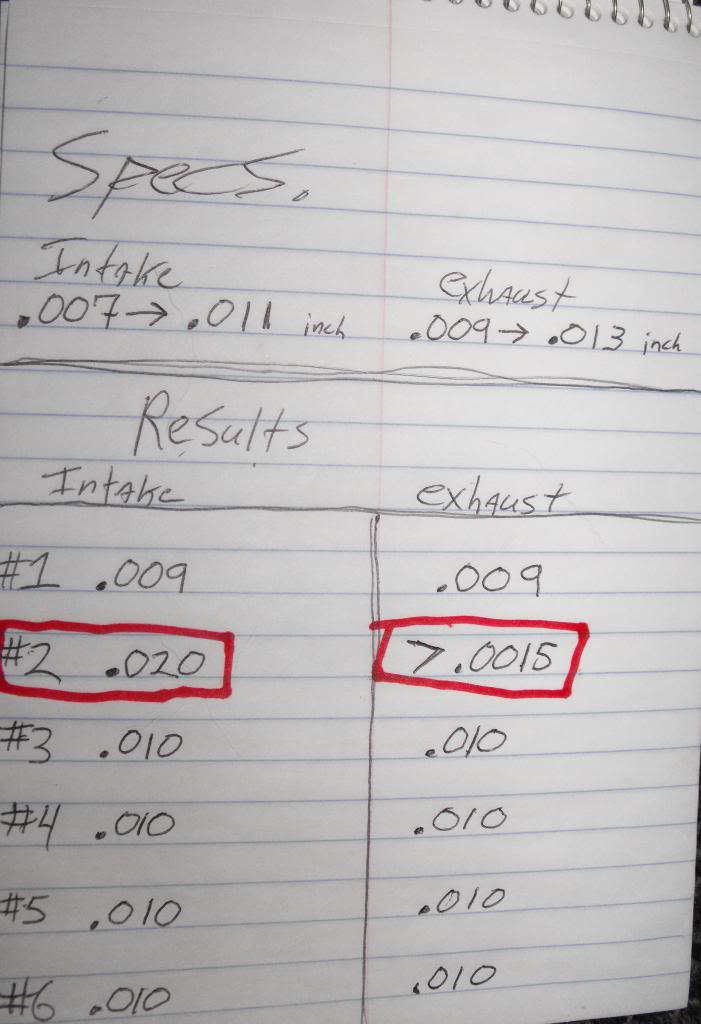 Specs.
Intake exhaust
.007→ .011 inch .009→ .013 inch
Results
Intake exhaust
#1 .009 .009
#2 .020 >.0015
#3 .010 .010
#4 .010 .010
#5 .010 .010
#6 .010 .010